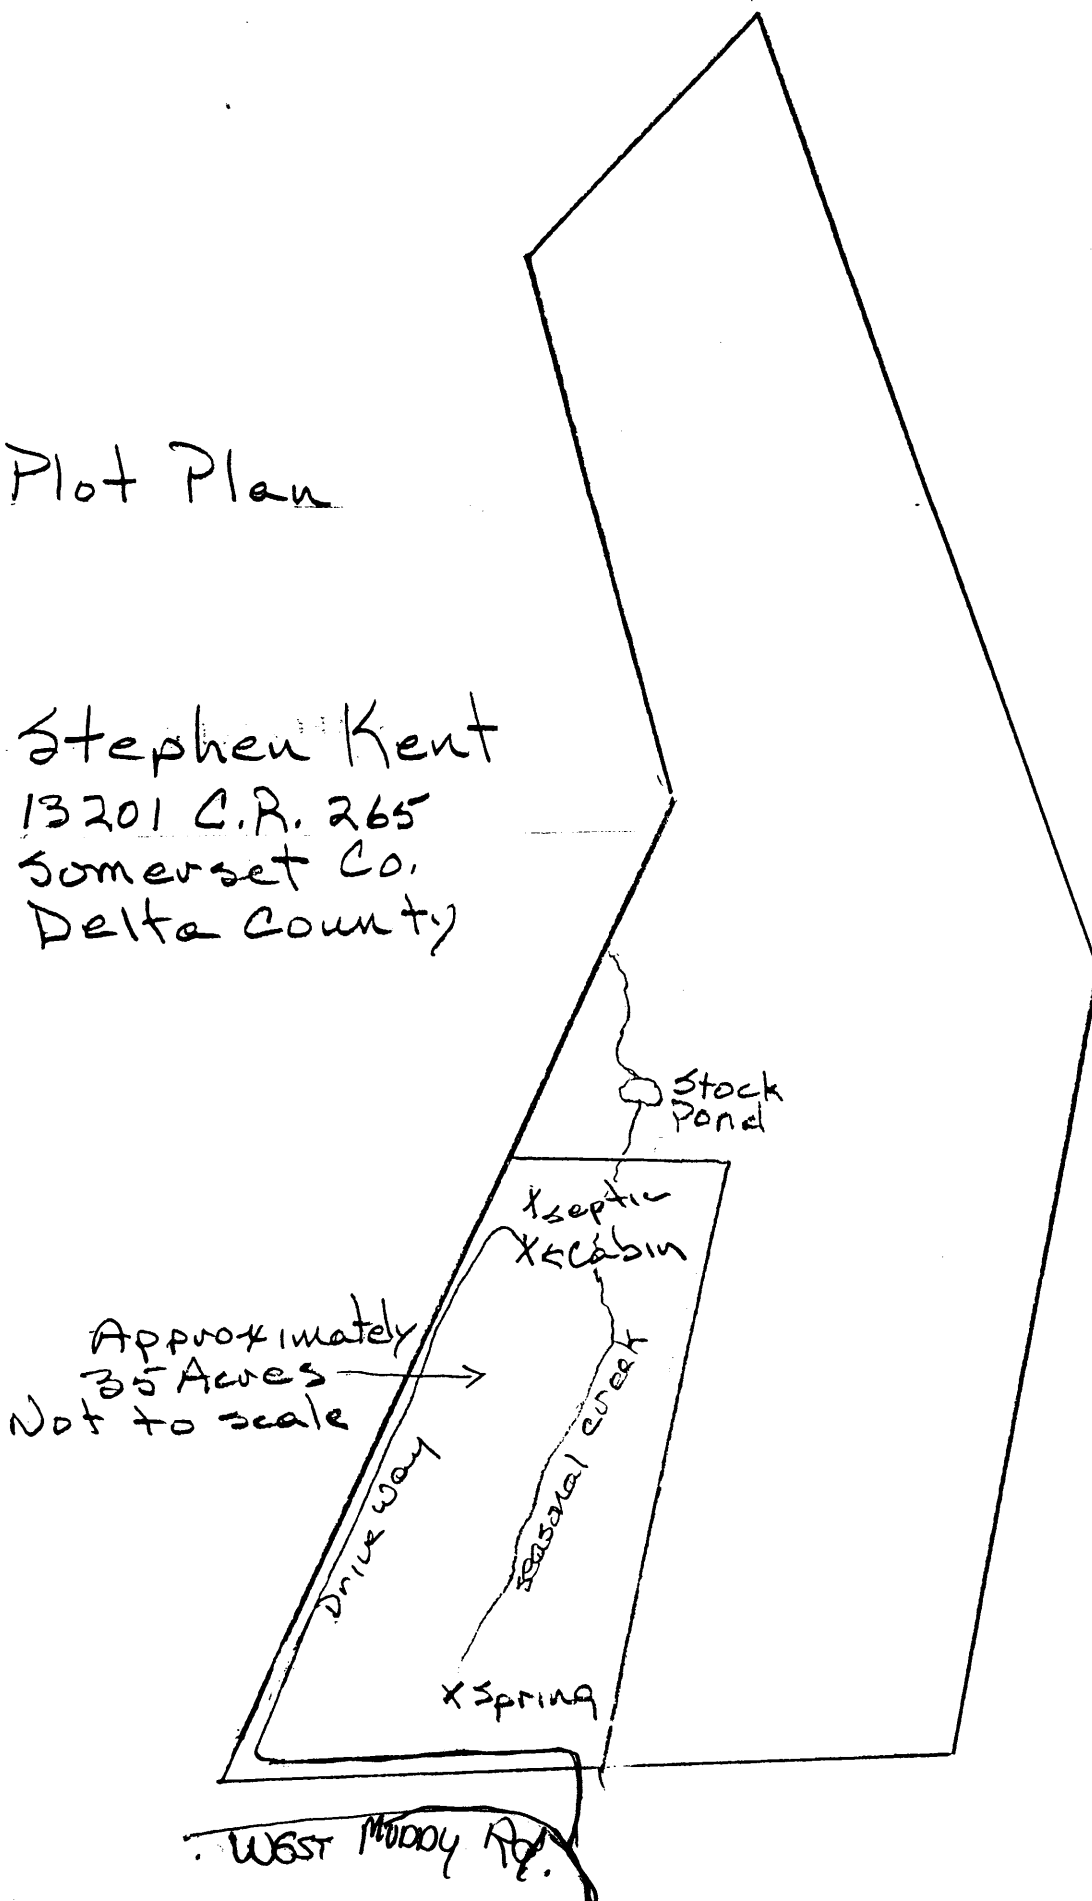 Plot Plan
Stephen Kent
13201 C.R. 265
Somerset Co.
Delta County
Stock
Pond
X septic
X < Cabin
Approximately
35 Acres
Not to scale
Drive Way
seasonal creek
X Spring
WEST MUDDY Rd.